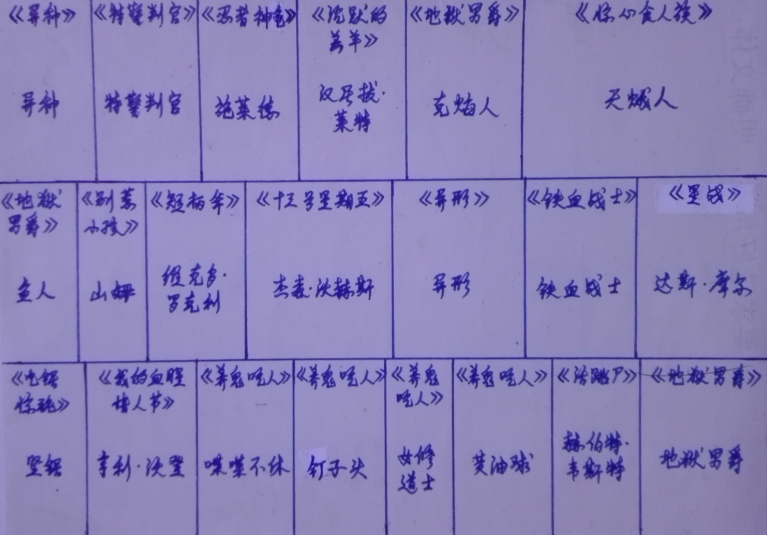 《异种》
异种
《特警判官》
特警判官
《忍者神龟》
施莱德
《沉默的
羔羊》
汉尼拔·
莱特
《地狱男爵》
克焰人
《惊心食人族》
天煞人
《地狱
男爵》
鱼人
《别惹
小孩》
山姆
《短柄斧》
维克多·
罗克利
《十三号星期五》
杰森·沃赫斯
《异形》
异形
《铁血战士》
铁血战士
《星战》
达斯·摩尔
《电锯
惊魂》
竖锯
《我的血腥
情人节》
亨利·沃登
《养鬼吃人》
喋喋不休
《养鬼吃人》
钉子头
《养鬼
吃人》
女修
道士
《养鬼吃人》
黄油球
《活跳尸》
赫伯特·
韦斯特
《地狱男爵》
地狱男爵